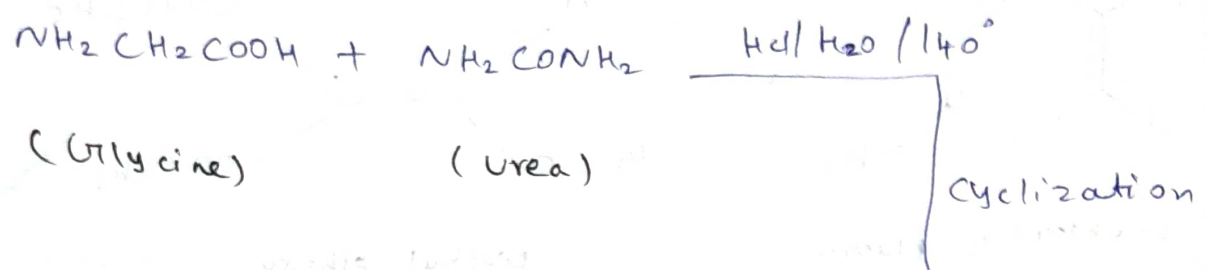 NH₂ CH₂ COOH + NH₂ CONH₂ HCl/ H₂O / 140°
(Glycine) (Urea)
Cyclization